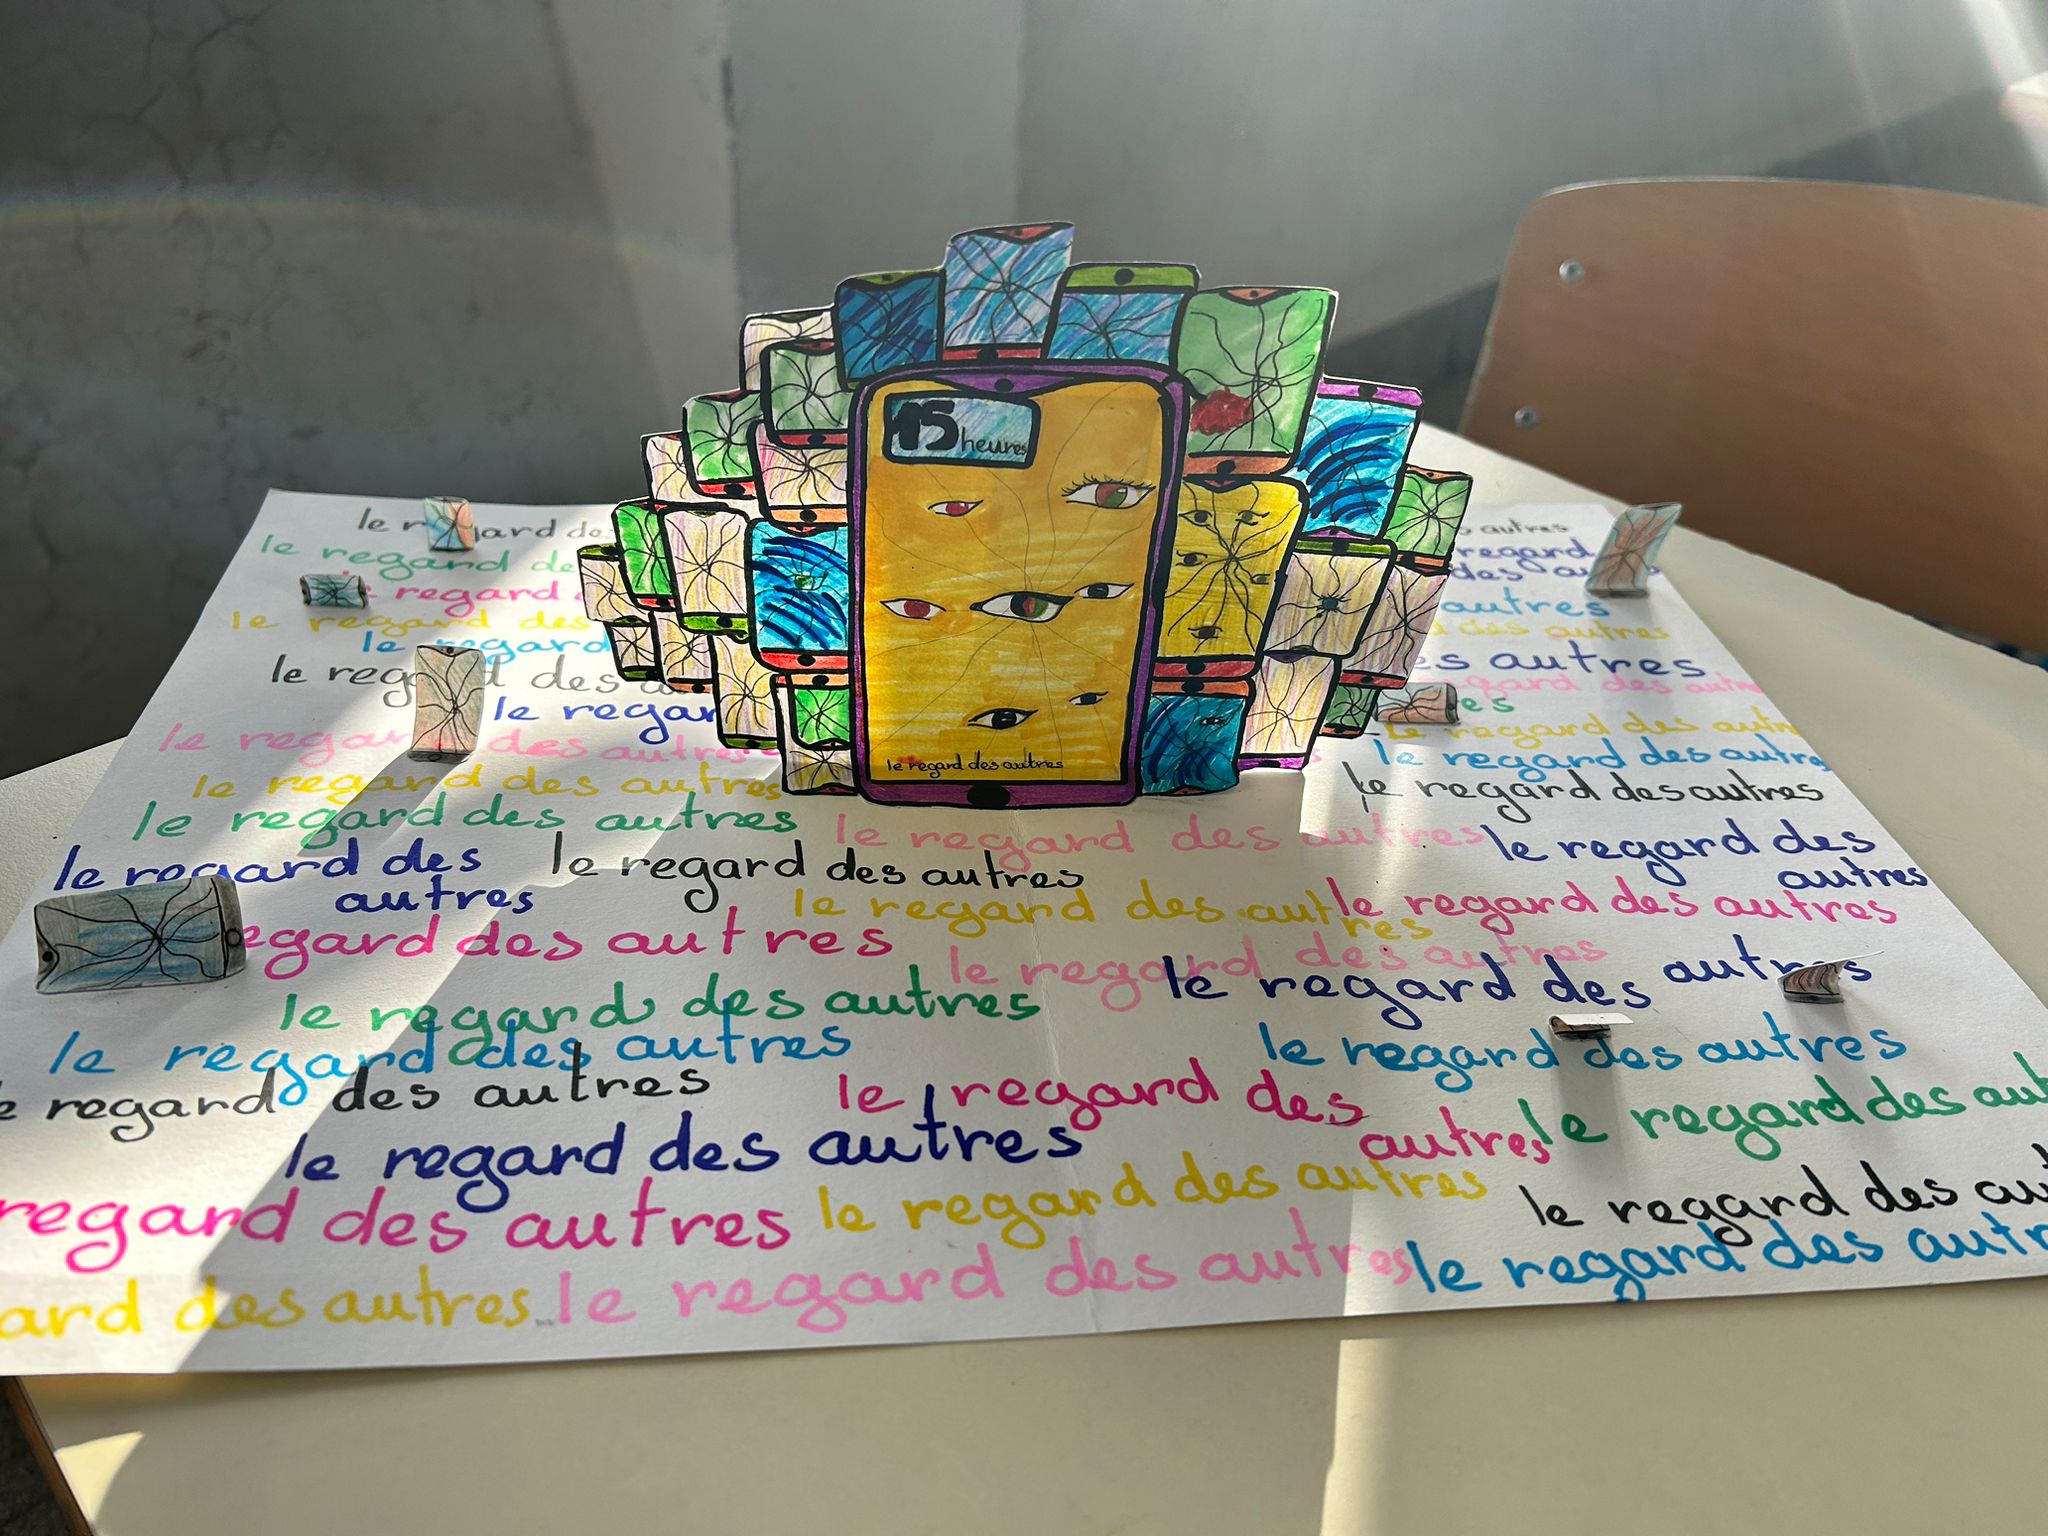 15
heures
le regard des autres
le regard de
autres
le regard de
regard
des
le regard
autres
le regard des
des autres
le regard
des autres
le
des
le regar
regard des
le regard des autres
le regard des autres
le regard des autres
le regard des autres
le regard des autres
le regard des autres
le regard des autres
le regard des
autres
le regard des
autres
le regard des autres
le regard des autres
le regard des autres
le regard des autres
egard des autres
le regard des autres
le regard des autres
le regard des autres
le regard des autres
le regard des autres
e regard des autres
le regard des
autres
le regard des aut
le regard des autres
regard des autres
le regard des autres
le regard des au
ard des autres...
le regard des autres
le regard des autr